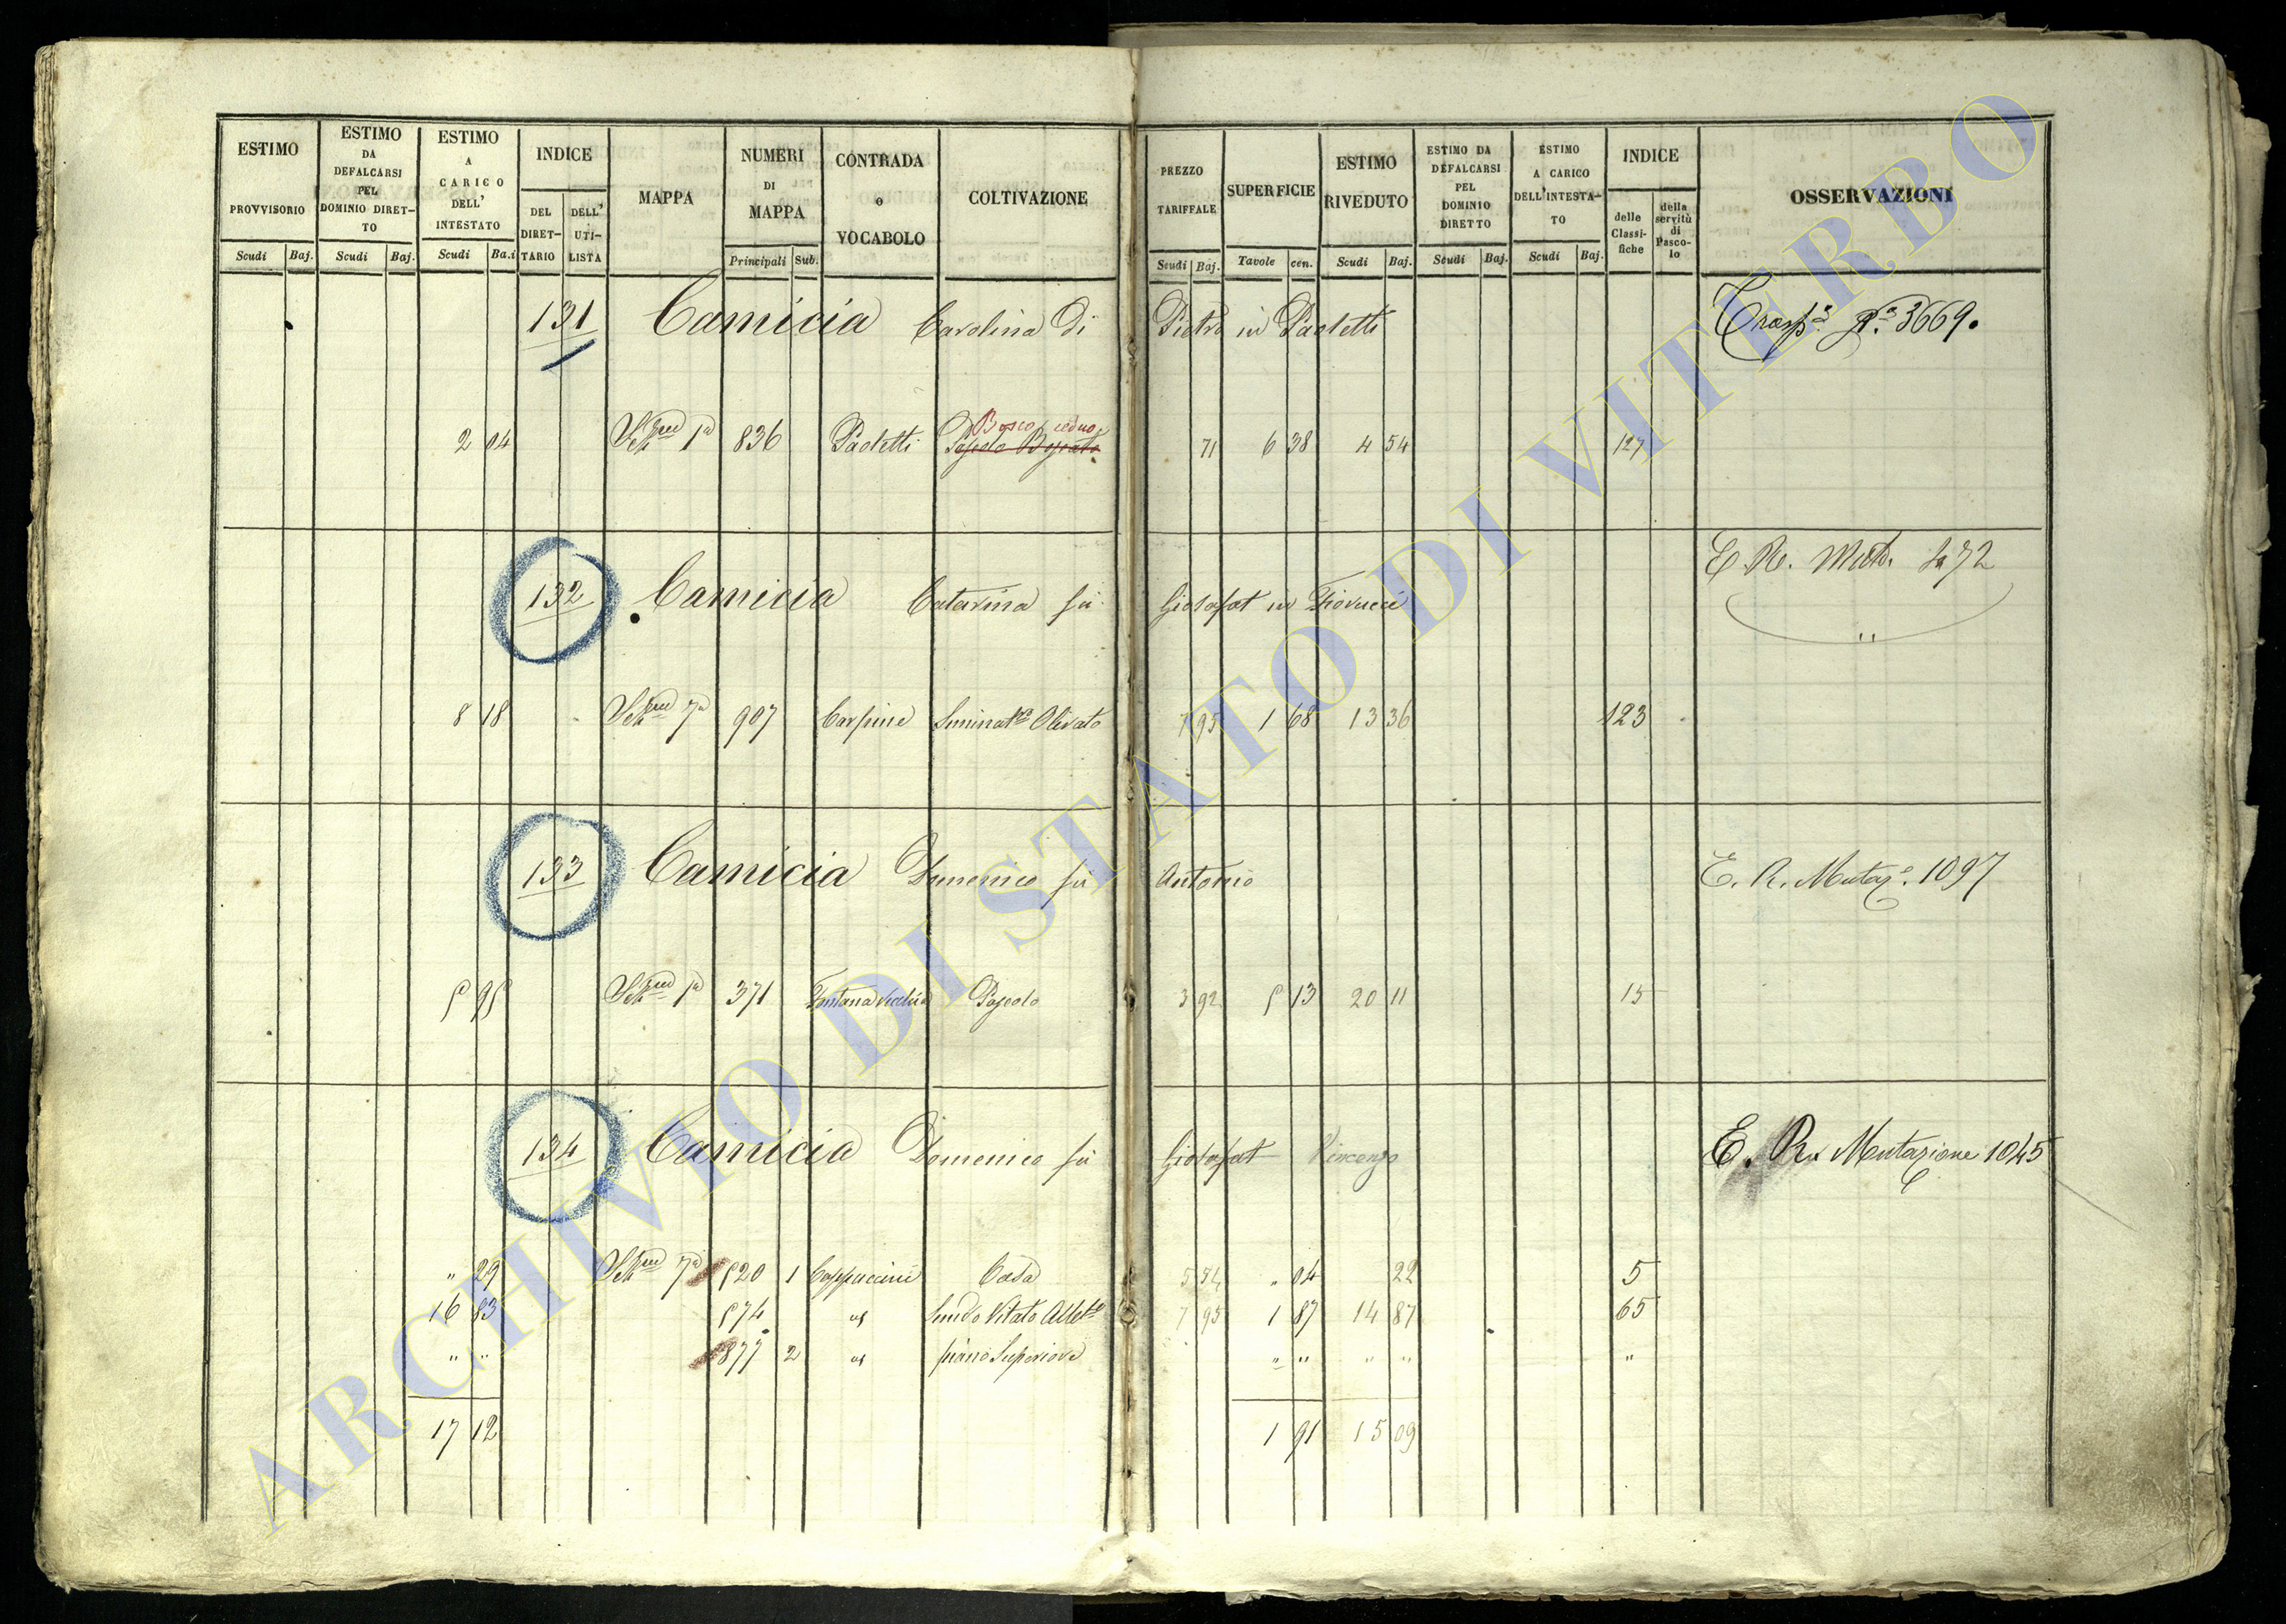 ESTIMO PROVVISORIO Scudi Baj.
ESTIMO DA DEFALCARSI PEL DOMINIO DIRET-TO Scudi Baj.
ESTIMO A CARICO DELL' INTESTATO Scudi Ba.i
INDICE DEL DIRET-TARIO DELL' UTI-LISTA
MAPPA
NUMERI DI MAPPA Principali Sub.
CONTRADA o VOCABOLO
COLTIVAZIONE
PREZZO TARIFFALE Scudi Baj.
SUPERFICIE Tavole cen.
ESTIMO RIVEDUTO Scudi Baj.
ESTIMO DA DEFALCARSI PEL DOMINIO DIRETTO Scudi Baj.
ESTIMO A CARICO DELL'INTESTA-TO Scudi Baj.
INDICE delle Classi-fiche della servitù di Pasco-lo
OSSERVAZIONI
131 Camicia Carolina di Pietro in Paoletti Trasp. 3669.
Bosco ceduo
2 04 Sez 1a 836 Paoletti Pascolo Boscato 71 6 38 4 54 127
132 Camicia Catarina fu Giosafat in Fiorucci E. R. Mut. 72
"
8 18 Sez 7a 907 Carpine Seminat.o Olivato 7 95 1 68 13 36 123
133 Camicia Domenico fu Antonio E. R. Mutaz. 1097
5 95 Sez 1a 371 Fontana Vecchia Pascolo 3 92 5 13 20 11 15
134 Camicia Domenico fu Giosafat Vincenzo E. R. Mutazione 1045
" 29 Sez 7a 520 1 Cappuccini Casa 5 54 " 04 22 5
16 83 574 Vitato 7 95 1 87 14 87 65
" " 877 2 piano Superiore " " " " "
17 12 1 91 15 09
ARCHIVIO DI STATO DI VITERBO